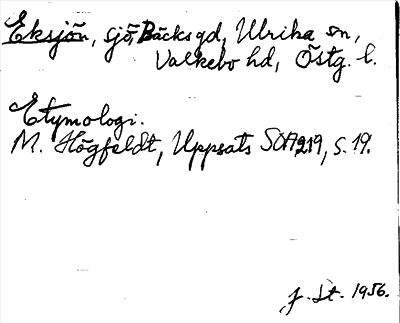 Eksjön, sjö, Bäcks gd, Ulrika sn,
Valkebo hd, Östg. l.
Etymologi.
M. Högfeldt, Uppsats SOA 219, s. 19.
J. St. 1956.